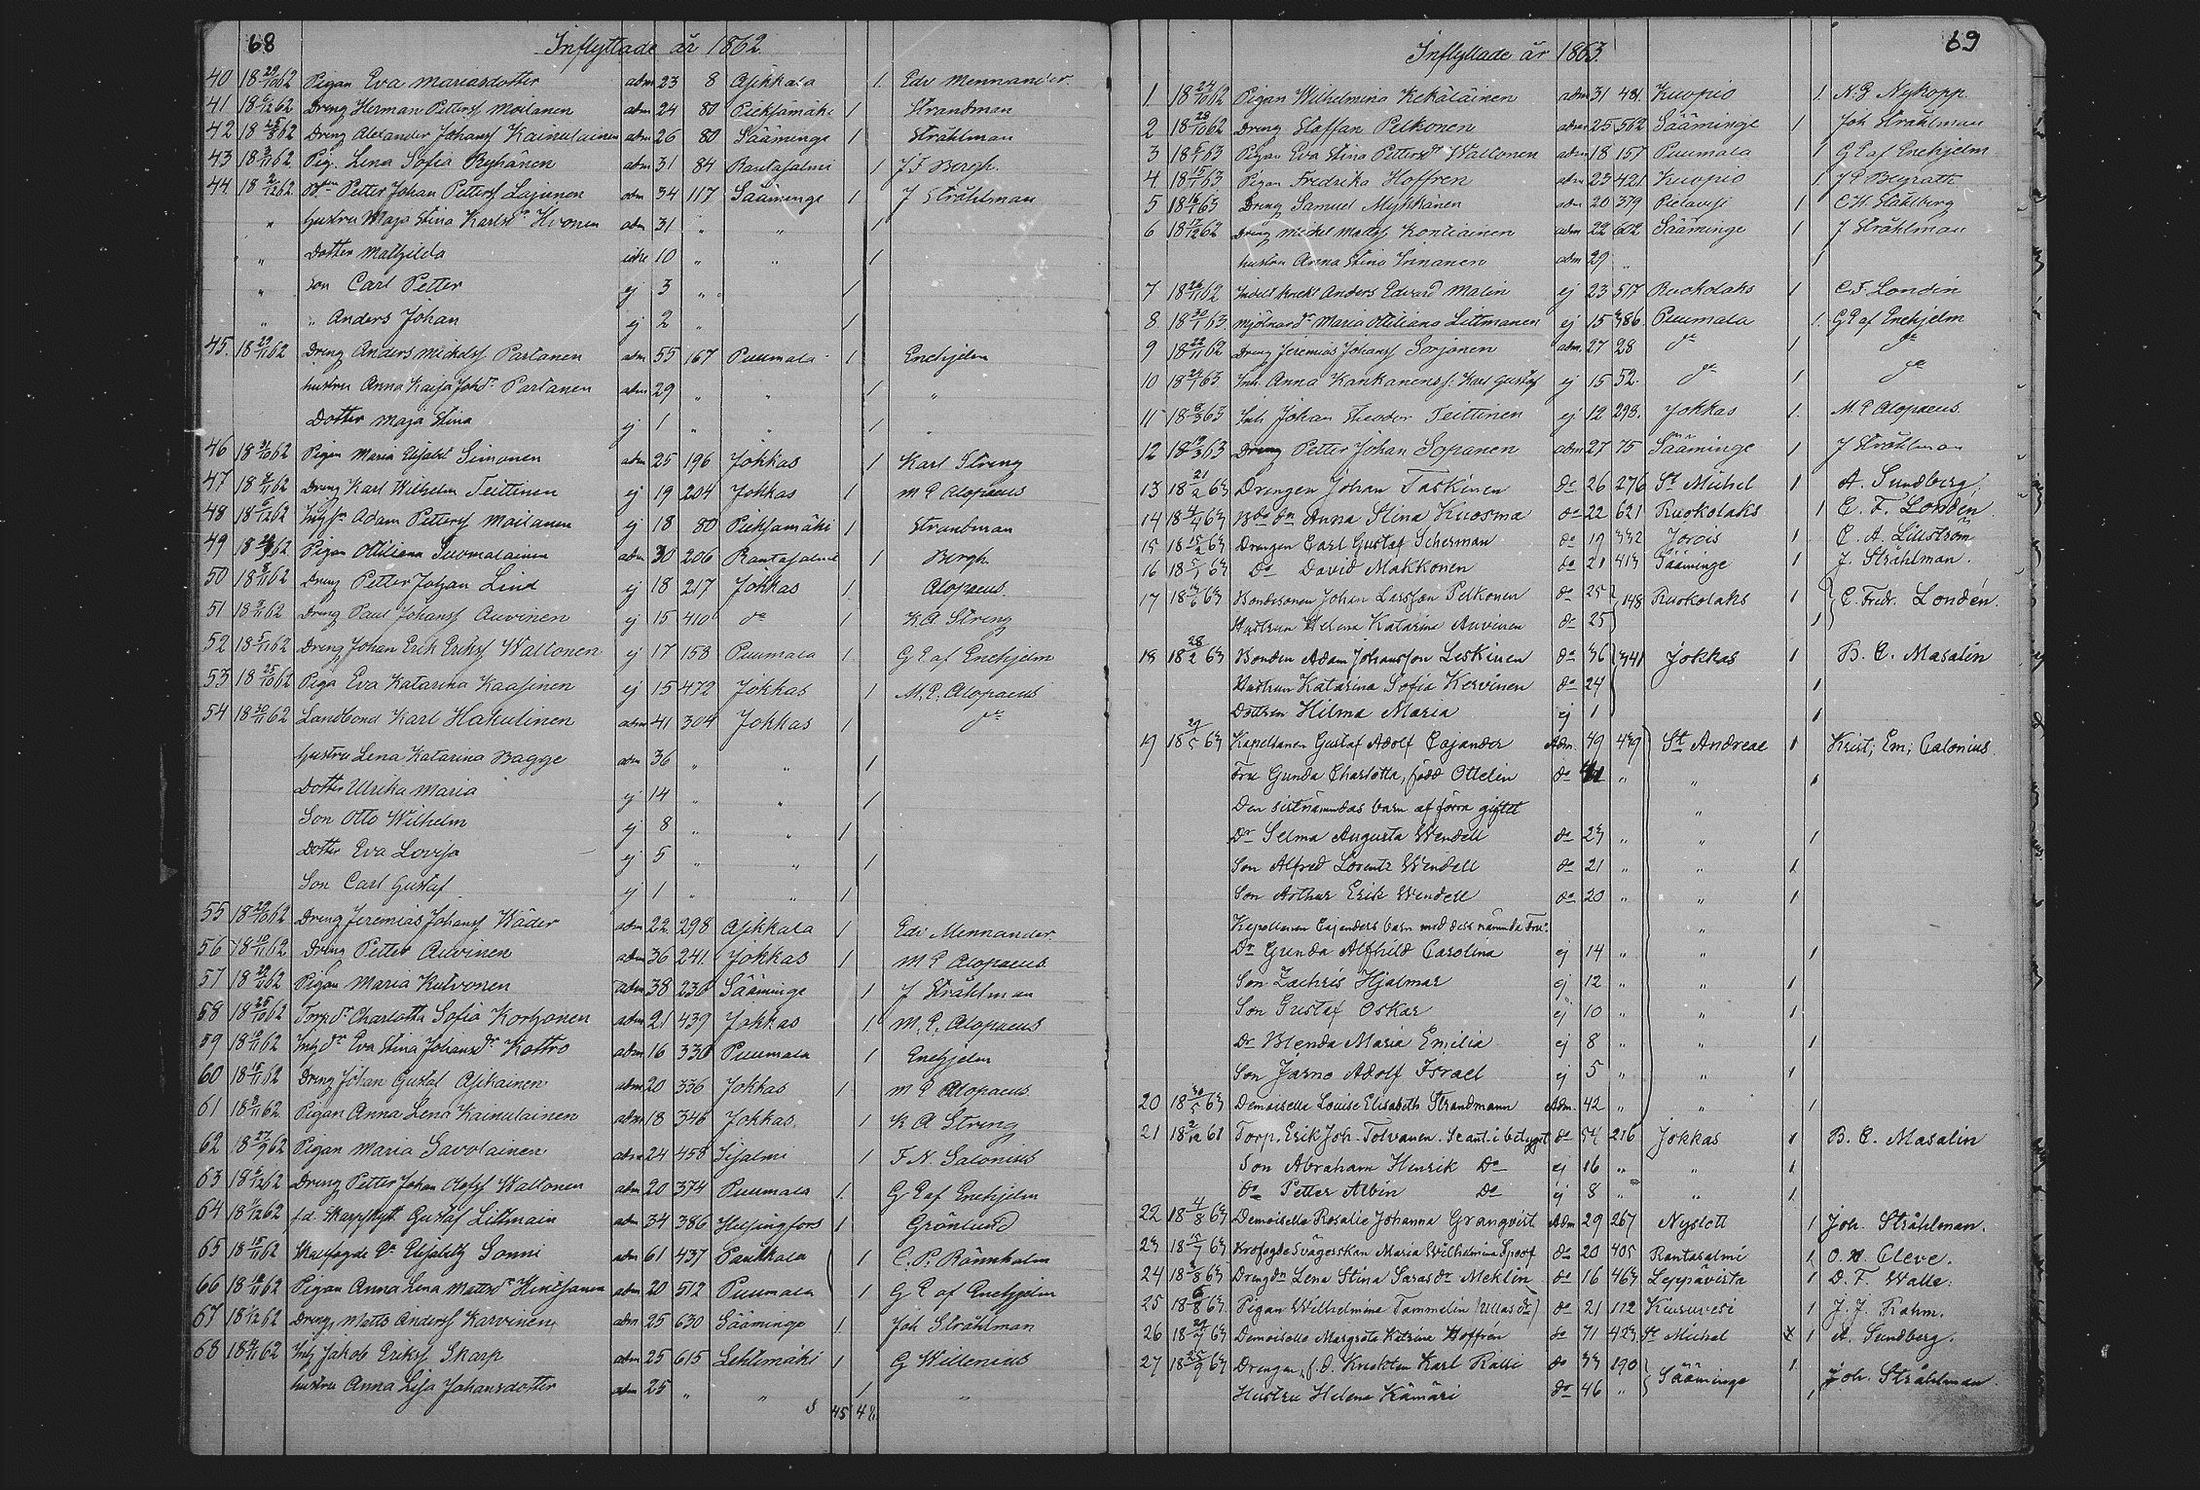 68
Inflyttade år 1862
40 18 29/10 62 Pigan Eva Mariasdotter adm 23 8 Asikkala 1. Edv Mennander.
41 18 6/12 62 Dreng Herman Petterss Moilanen adm 24 80 Pieksämäki 1 Strandman
42 18 62 Dreng Alexander Johanss Kainulainen adm 26 80 Sääminge 1 Stråhlman
43 18 62 Pig. Lena Sofia Ryhänen adm 31 84 Rantasalmi 1 J F Bergh.
44 18 62 Petter Johan Petterss Laamanen adm 34 117 Sääminge 1 J Stråhlman
" hustru Maja Stina Karlsdr Hivonen adm 31 " " 1
" Dotter Mathilda icke 10 " " 1
" Son Carl Petter ej 3 " " 1
" " Anders Johan ej 2 " 1
45. 18 29/11 62 Dreng Anders Michelss Partanen adm 55 167 Puumala 1 Enehjelm
hustru Anna Kaisa Johdr Partanen adm 29 " " 1 "
Dotter Maja Stina ej 1 " " 1 "
46 18 62 Pigan Maria Elisabet Simonen adm 25 196 Jokkas 1 Karl Streng
47 18 62 Dreng Karl Wilhelm Teittinen ej 19 204 Jokkas 1 M E Alopaeus
48 18 6/12 62 Adam Petterss Moilanen ej 18 80 Pieksämäki 1 Strandman
49 18 62 Pigan Ottiliana Suomalainen adm 30 206 Rantasalmi 1 Bergh
50 18 62 Dreng Petter Johan Lind ej 18 217 Jokkas 1 Alopaeus.
51 18 62 Dreng Paul Johanss Auvinen ej 15 410 do 1 K A Streng
52 18 5/11 62 Dreng Johan Erik Erikss Waltonen ej 17 158 Puumala 1 G E af Enehjelm
53 18 25/10 62 Piga Eva Katarina Kaasinen ej 15 472 Jokkas 1 M. E. Alopaeus
54 18 30/11 62 Landbond Karl Hakulinen adm 41 304 Jokkas 1 do
hustru Lena Katarina Bagge adm 36 " " 1
Dotter Ulrika Maria ej 14 " " 1
Son Otto Wilhelm ej 8 " " 1
Dotter Eva Lovisa ej 5 " " 1
Son Carl Gustaf ej 1 " " 1
55 18 29/10 62 Dreng Jeremias Johanss Wäder adm 22. 298 Asikkala 1 Edv Mennander.
56 18 10/11 62 Dreng Petter Auvinen adm 36 241. Jokkas 1 M E Alopaeus
57 18 62 Pigan Maria Kulvonen adm 38 230 Sääminge 1 J Stråhlman
58 18 25/10 62 Torp.dr Charlotta Sofia Korhonen adm 21 439 Jokkas 1 M. E. Alopaeus
59 18 62 Inh dr Eva Stina Johansdr Kottro adm 16 330 Puumala 1 Enehjelm
60 18 62 Dreng Johan Gustaf Asikainen adm 20 336 Jokkas 1 M E Alopaeus.
61 18 62 Pigan Anna Lena Kainulainen adm 18 346 Jokkas. 1 K A Streng
62 18 27/9 62 Pigan Maria Savolainen adm 24 458 Iisalmi 1 F N. Salonius
63 18 62 Dreng Petter Johan Olofss Waltonen adm 20 374 Puumala 1. G E af Enehjelm
64 18 62 f.d. Skarpskytt Gustaf Littmain adm 34 386 Helsingfors 1 Grönlund
65 18 15/11 62 Skallfogde Dr Elisabeth Sonni adm 61 437 Paukkala 1 C. P. Rännholm
66 18 62 Pigan Anna Lena Mattsdr Hintsanen adm 20 512 Puumala 1 G E af Enehjelm
67 18 62 Dreng Matts Anderss Karvinen adm 25 630 Sääminge 1. Joh Stråhlman
68 18 62 Inh Jakob Erikss Skarp adm 25 615 Lehtimäki 1 G Willenius
hustru Anna Lisa Johansdotter adm 25 " " 1 "
S 45 48
69
Inflyttade år 1863.
1 18 27/10 62 Pigan Wilhelmina Kekäläinen adm 31 481. Kuopio 1. N. G Nykopp
2 18 28/10 62 Dreng Staffan Pelkonen adm 25 562 Sääminge 1 Joh Stråhlman
3 18 63 Pigan Eva Stina Pettersdr Waltonen adm 18 157 Puumala 1 G E af Enehjelm
4 18 63 Pigan Fredrika Hoffren adm 23 421 Kuopio 1. J P Beyrath
5 18 63 Dreng Samuel Mykkänen adm 20 379 Pielavesi 1 C H. Ståhlberg
6 18 17/12 62 Dreng Michel Matts Kontiainen adm 22 602 Sääminge 1 J Stråhlman
hustru Anna Stina Innanen adm 29 " 1
7 18 62 Indelt Knekt Anders Edvard Malin ej 23 517 Ruokolaks 1 C. F. Londén
8 18 63 Mjölnardr Maria Ottiliana Littmanen ej 15 386. Puumala 1. G E af Enehjelm
9 18 22/11 62 Dreng Jeremias Johanss Sorjonen adm. 27 28 do 1 do
10 18 63. Inh. Anna Kankanens s. Karl Gustaf ej 15 52. do 1 do
11 18 63 Inh Johan Theodor Teittinen ej 12 298. Jokkas 1. M. E Alopaeus.
12 18 63 Dreng Petter Johan Sopanen adm 27 75 Sääminge 1 J Stråhlman
13 18 21/2 63 Drengen Johan Taskinen do 26 276 St. Michel 1 A. Sundberg
14 18 4/4 63 Bde dn Anna Stina Kuosma do 22 621 Ruokolaks 1 C. F. Londén
15 18 15/2 63 Drengen Carl Gustaf Scherman do 19 332 Jorois 1 C. A. Liliström
16 18 5/1 63 Do David Makkonen do 21 413 Sääminge 1 J. Stråhlman.
17 18 63 Bondesonen Johan Larsson Pelkonen do 25 148 Ruokolaks 1 C. Fredr. Londén.
Hustrun Helena Katarina Auvinen do 25 1
18 18 28/2 63 Bonden Adam Johansson Leskinen do 36 341 Jokkas 1 B. E. Masalin
Hustrun Katarina Sofia Kervinen do 24 1
Dottren Hilma Maria ej 1 1
19 18 63 Kapellanen Gustaf Adolf Cajander Adm. 49 439 St Andreae 1 Krist; Em; Calonius.
Fru Gunda Charlotta, född Ottelin do 41 " " 1
Den sistnämndas barn af förra giftet "
Dr Selma Augusta Wendell do 23 " " 1
Son Alfred Lorentz Wendell do 21 " " 1
Son Arthur Erik Wendell do 20 " " 1
Kapellanen Cajanders barn med dess nämnda Fru. "
Dr Gunda Alfhild Carolina ej 14 " " 1
Son Zachris Hjalmar ej 12 " " 1
Son Gustaf Oskar ej 10 " " 1
Dr Blenda Maria Emilia ej 8 " " 1
Son Jarno Adolf Israel ej 5 " " 1
20 18 30/5 63 Demoiselle Louise Elisabeth Strandmann Adm. 42 " " 1
21 18 2/12 61 Torp. Erik Joh. Tolvanen. Se ant. i betyget do 54 216 Jokkas 1 B. E. Masalin
Son Abraham Henrik Do ej 16 " " 1
Do Petter Albin Do ej 8 " " 1.
22 18 4/8 63 Demoiselle Rosalie Johanna Granqvist Adm 29 267 Nyslott 1 Joh. Stråhlman.
23 18 63 Krofogde Svägerskan Maria Wilhelmina Spoof do 20 405 Rantasalmi 1 O. W. Cleve.
24 18 63 Drengdn Lena Stina Sarasdr Meklin do 16 463 Leppävirta 1 D. F. Walle.
25 18 6/8 63 Pigan Wilhelmina Tammelin (Ullas dr) do 21 112 Kiuruvesi 1 J. J. Frahm.
26 18 63 Demoiselle Margreta Katrine Hoffrén do 71 423 St Michel 1 A. Sundberg.
27 18 25/9 63 Drengen, f.d. Knekten Karl Ralli do 33 190 Sääminge 1. Joh. Stråhlman
Hustru Helena Kämäri do 46 " 1